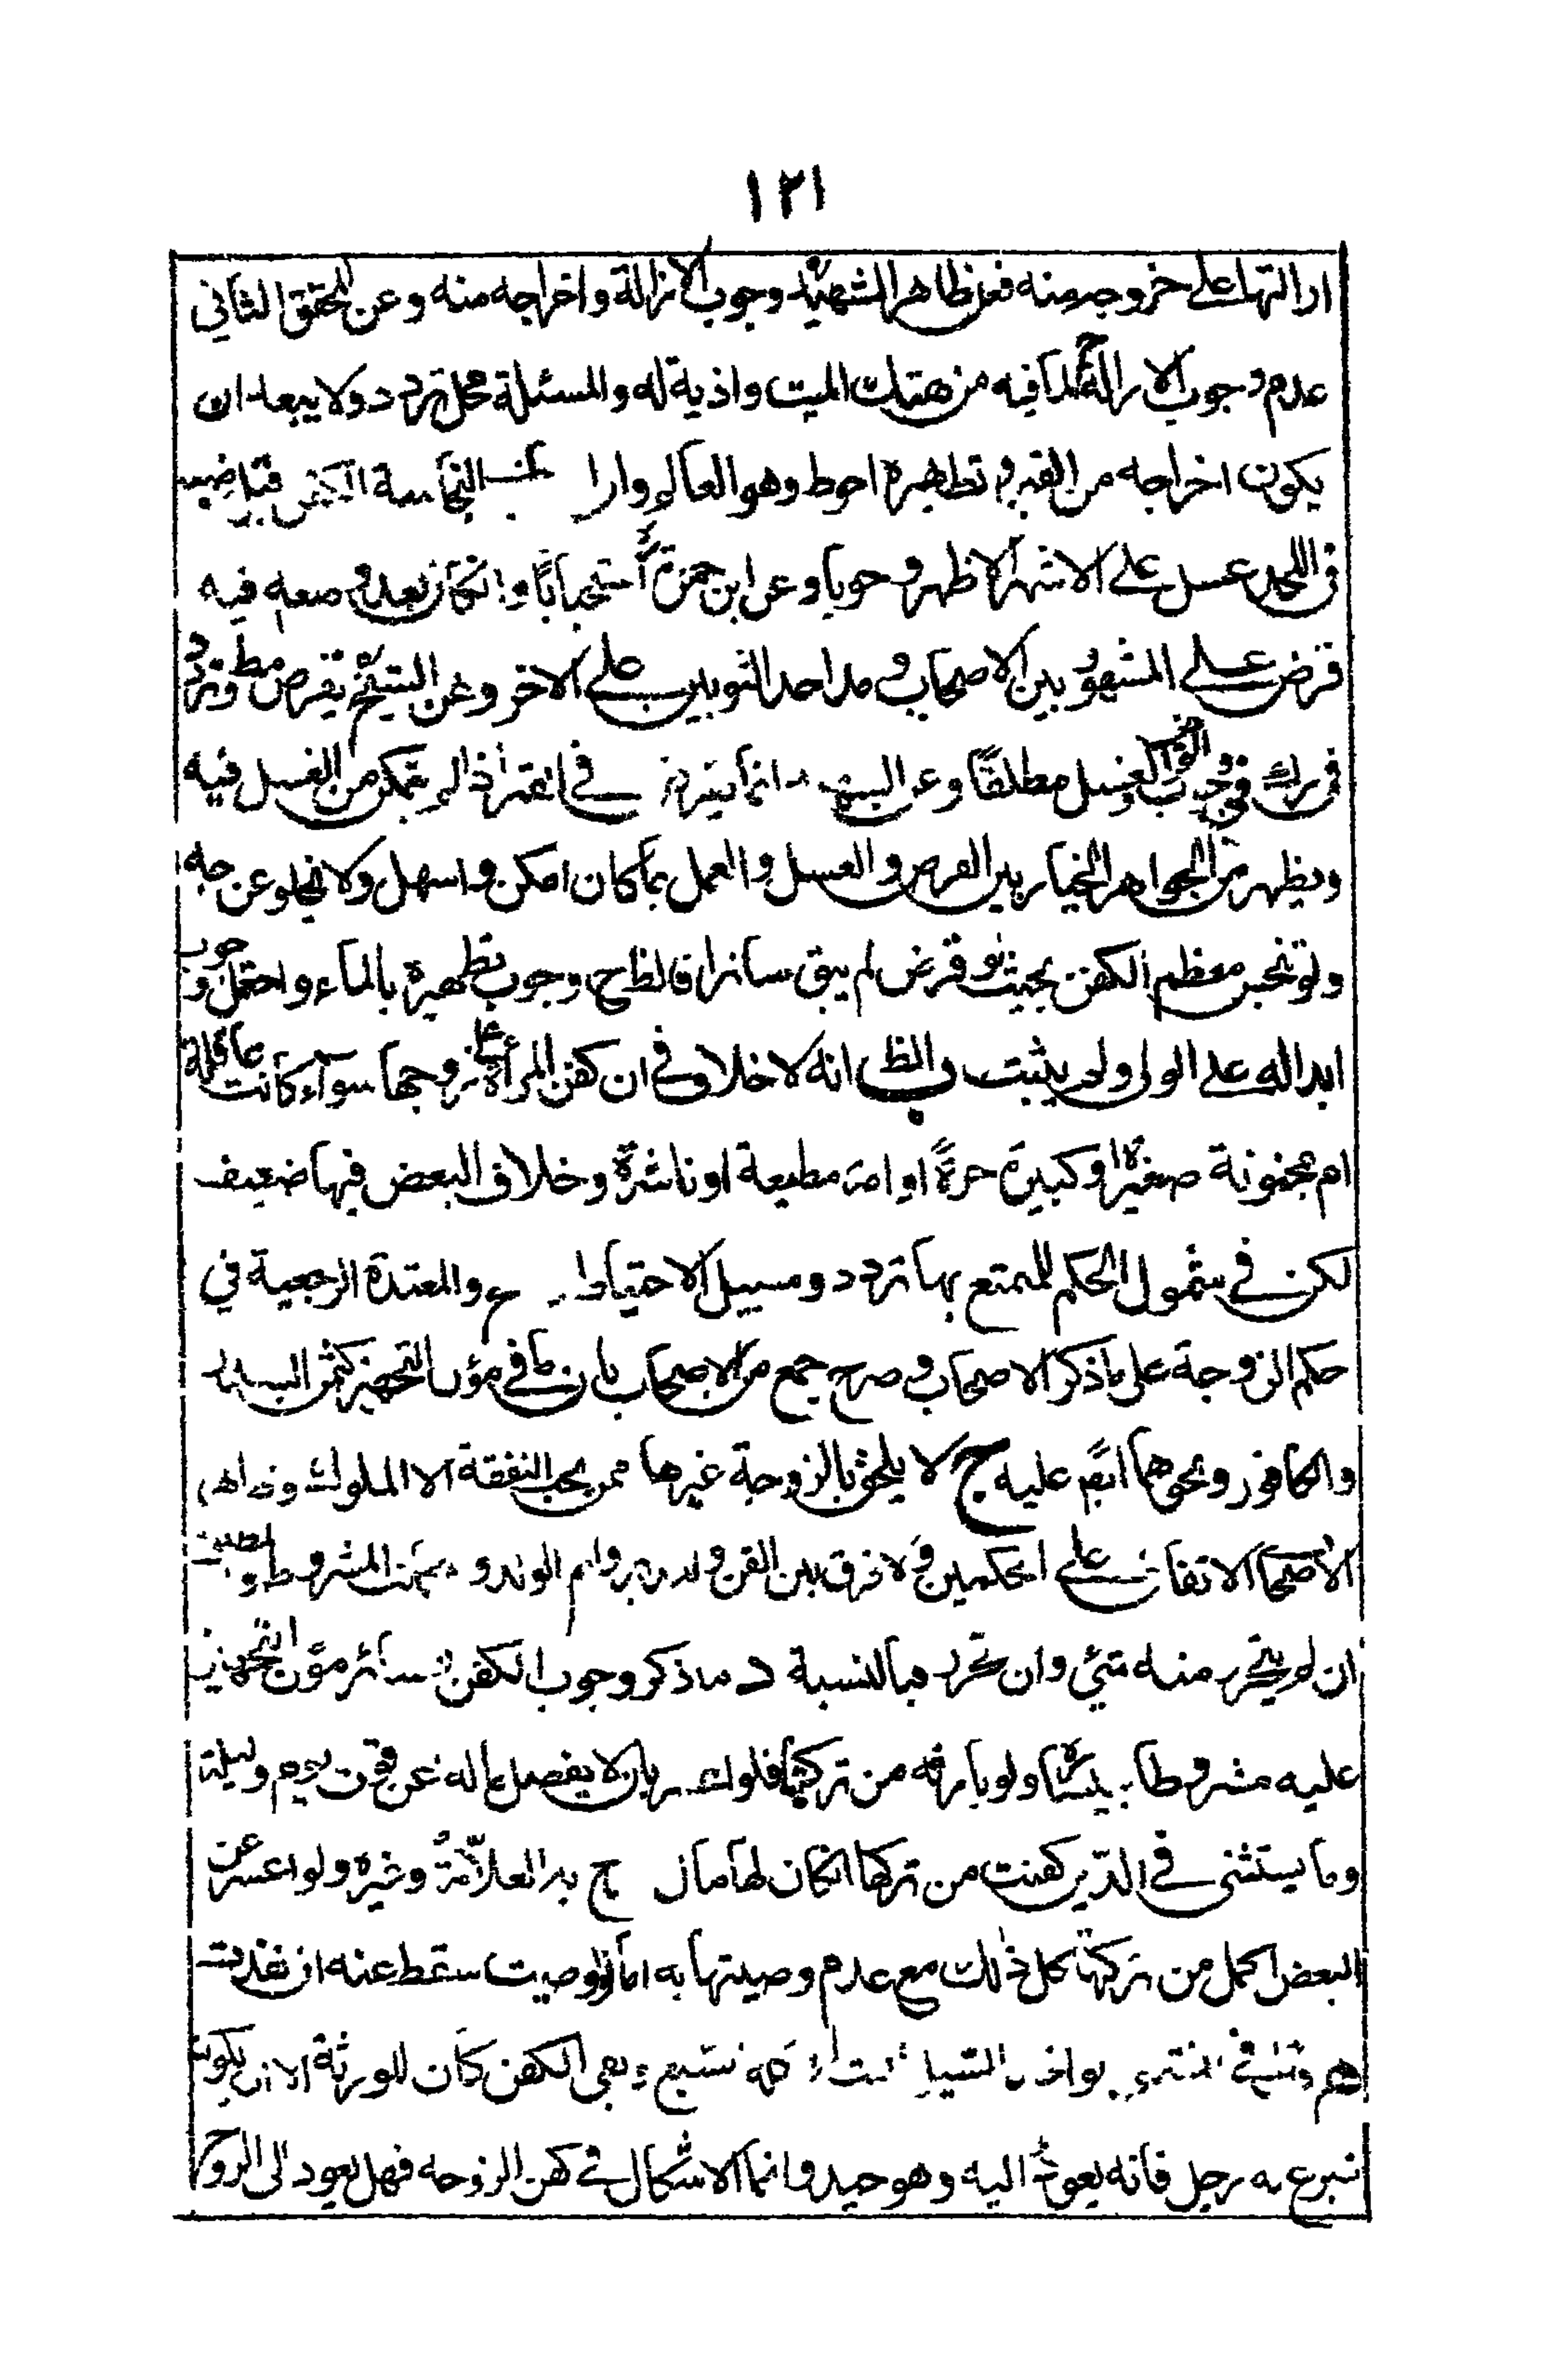 ١٢١
ازالتها على خروجه منه فعن ظاهر الشهيد وجوب الازالة واخراجه منه وعن المحقق الثاني
عدم وجوب الازالة ح لما فيه من هتك الميت واذية له والمسئلة محل تردد ولا يبعد ان
يكون اخراجه من القبر وتطهيره احوط وهو العالم النجاسة الكفن قبل
في اللحد غسل على الاشهر الاظهر وجوبا وعن ابن حمزة استحبابا وانكان بعد وضعه فيه
قرض على المشهور بين الاصحاب ومد احد الثوبين على الاخر وعن الشيخ يقرض مط وتردد
في وجوب الغسل مطلقا وعن انما في القبر اذا لم يتمكن من الغسل فيه
ويظهر من الجواهر الخيار بين القرض والغسل والعمل بما كان امكن واسهل ولا يخلو عن جه
ولو تنجس معظم الكفن بحيث لو قرض لم يبق ساترا فالظ ح وجوب تطهيره بالماء واحتمل وجوب
ابداله على الولي ولم يثبت والظ انه لا خلاف في ان كفن المرأة على زوجها سوآء كانت عاقلة
ام مجنونة صغيرة او كبيرة حرة او امة مطيعة او ناشزة وخلاف البعض فيها ضعيف
لكن في شمول الحكم للمتمتع بها تردد وسبيل الاحتياط والمعتدة الرجعية في
حكم الزوجة على ما ذكر الاصحاب وصرح جمع من الاصحاب بان مؤن التجهيز كثمن السدر
والكافور ونحوهما ايضم عليه ج لا يلحق بالزوجة غيرها ممن يجب النفقة الا المملوك
الاصحاب الاتفاق على الحكمين ولا فرق بين القن والمدبر وام الولد والمشروط
ان لم يتحرر منه شئ وان تحرر فبالنسبة ما ذكر وجوب الكفن سائر مؤن التجهيز
عليه مشروط ولو بارثه من تركتها فلو بان لا يفضل ماله عن قوت يوم وليلة
وما يستثنى في الدين كفنت من تركتها انكان لها مال العلامة وغيره ولو اعسر عن
البعض اكمل من تركتها كل ذلك مع عدم وصيتها به اما لو اوصيت سقط عنه ان نفذت
اخذ بقي الكفن كان للورثة الا ان يكون
تبرع به رجل فانه يعود اليه وهو جيد وانما الاشكال في كفن الزوجه فهل يعود الى الزوج